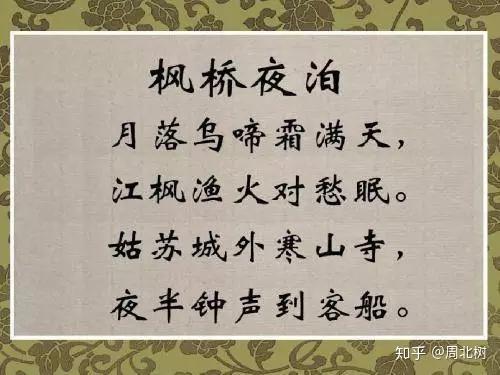 枫桥夜泊
月落乌啼霜满天，
江枫渔火对愁眠。
姑苏城外寒山寺，
夜半钟声到客船。
知乎 @周北树